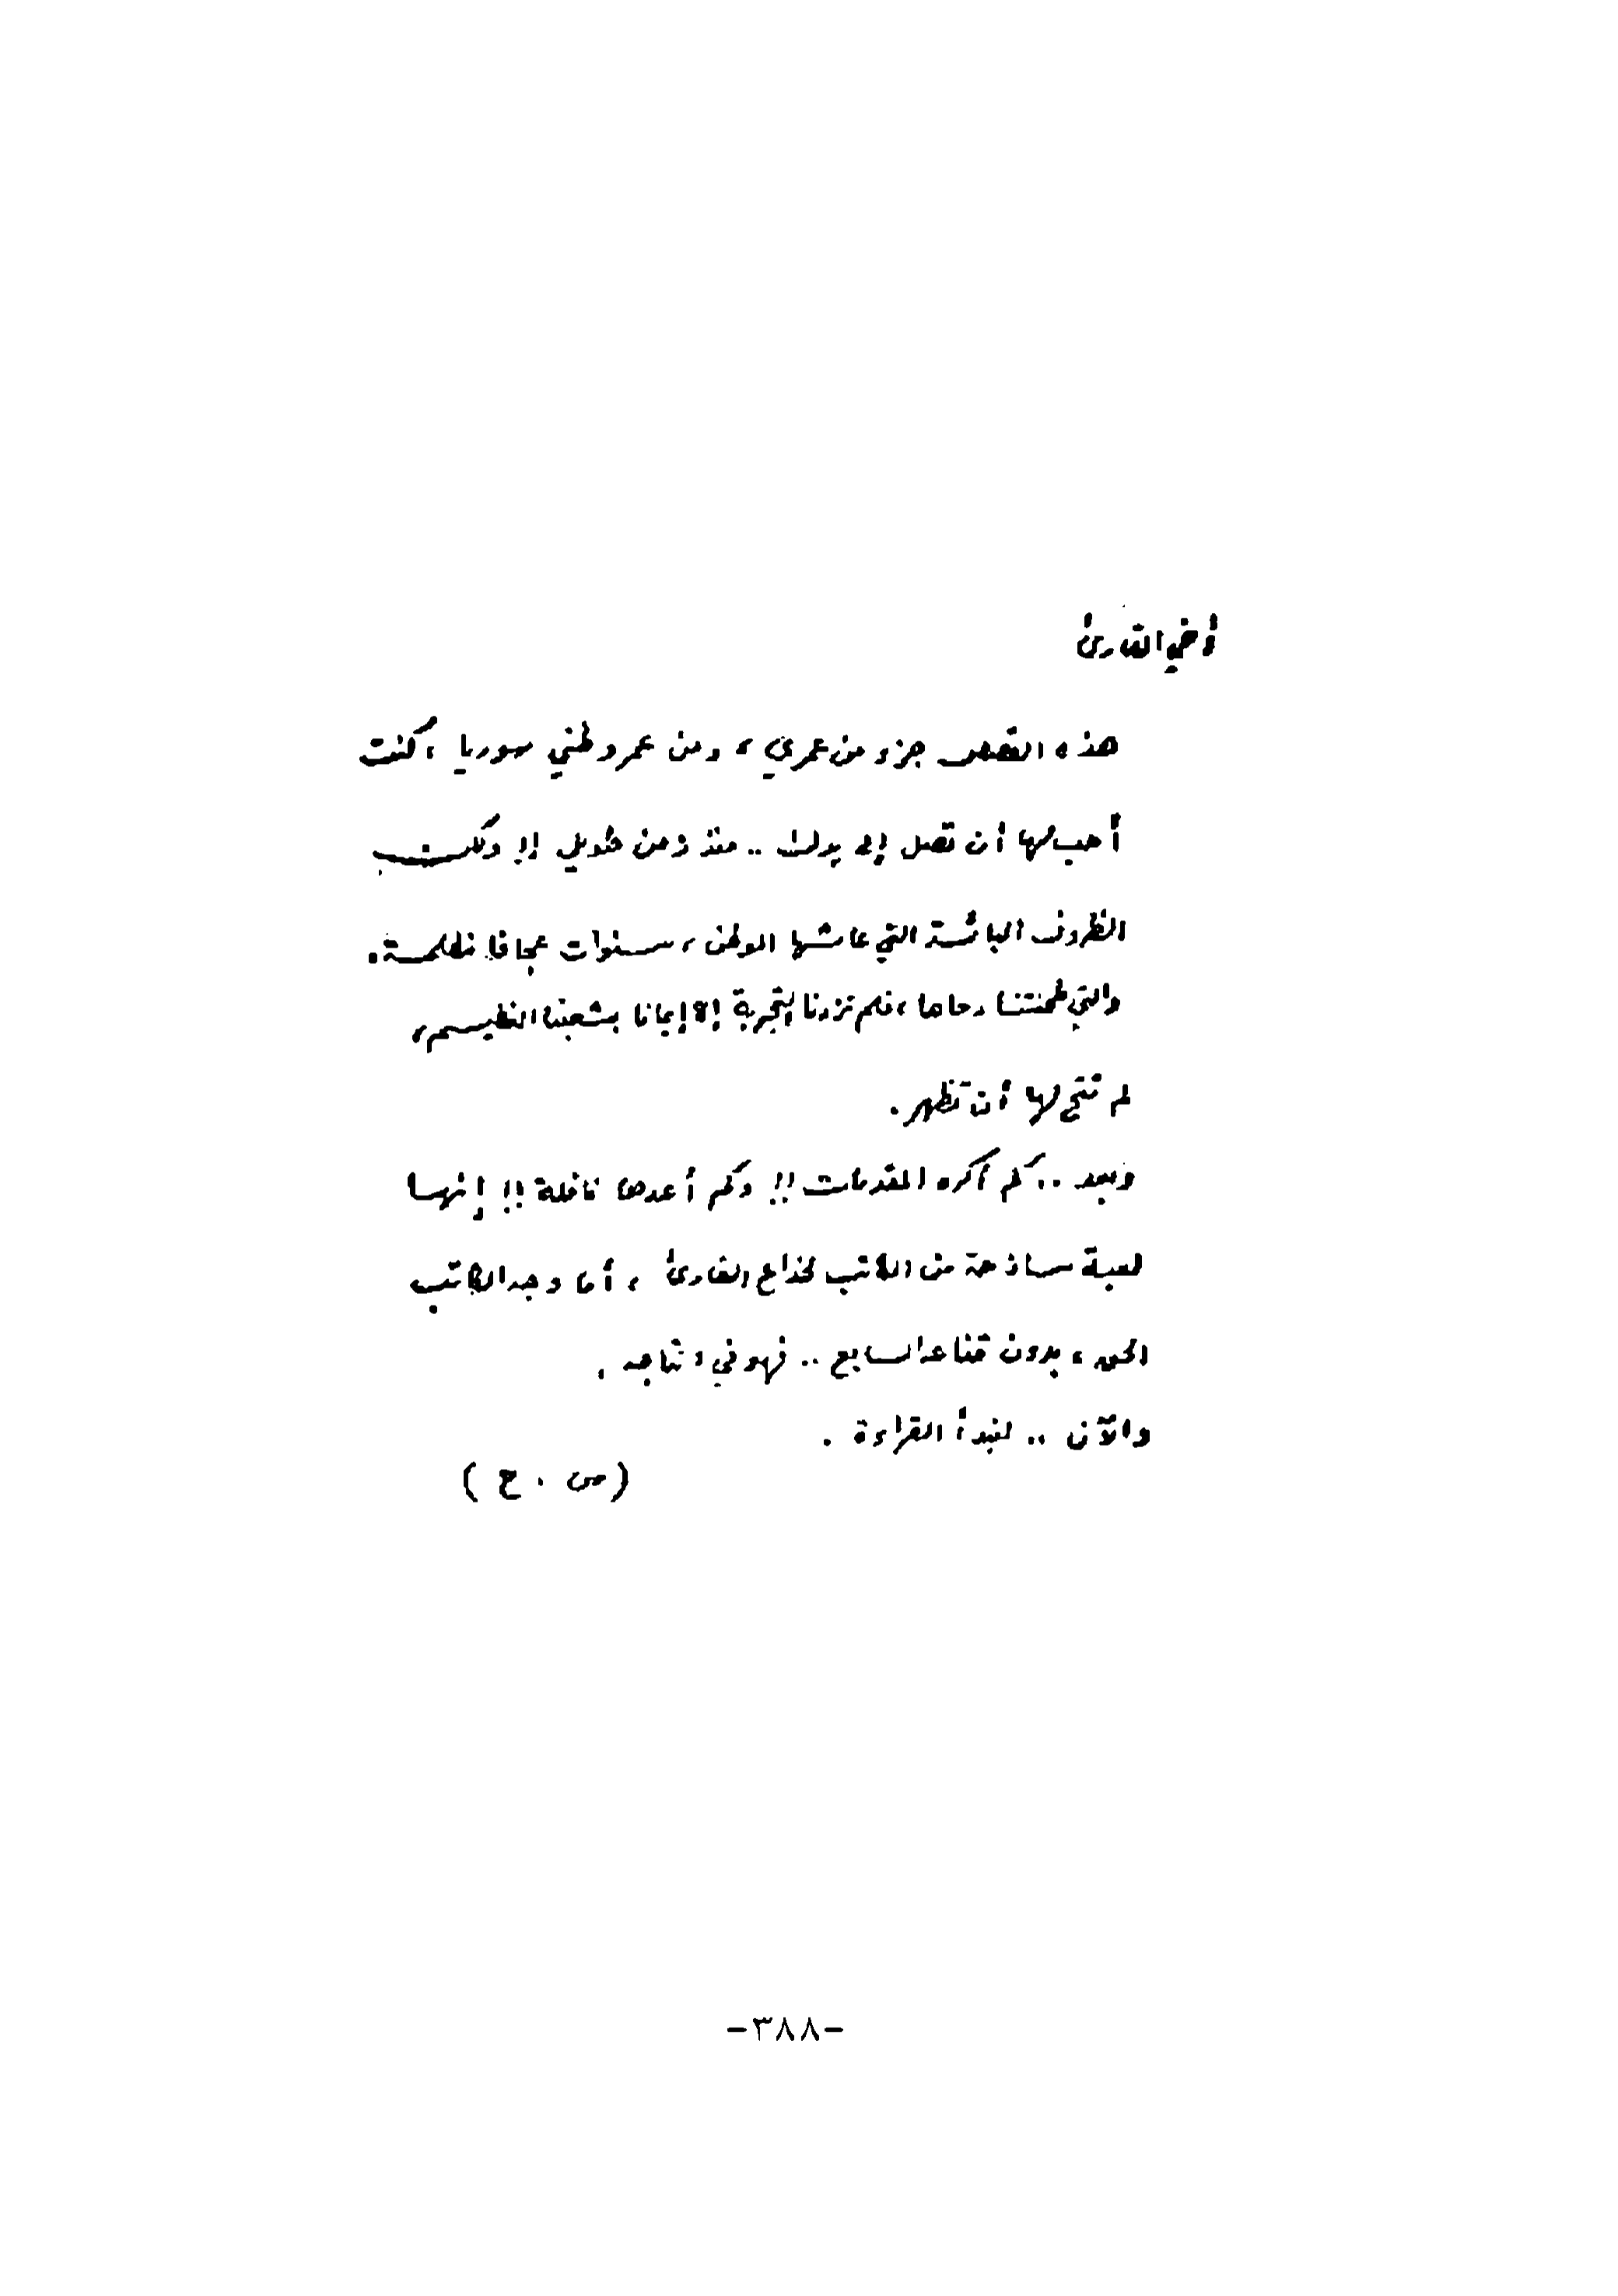 أخي القارئ
هذه القصص جزء من عمري ، ومن عمر وطني سوريا ، كنت
أحب لها أن تصل إلى يديك .. منذ زمن طويل !! ولكن
الظروف البائسة التي عاشها الوطن ، سنوات عجافا ظالمة .
والتي طحنتنا رحاها ، فلم تزدنا التجربة إلا إيمانا بشعبنا العظيم ،
لم تتح لها أن تظهر .
وبعد .. كم أكره المقدمات !! وكم أعدها نافلة !! إنها
لعبة ساذجة من الكاتب لخداع القارئ ، أما وجه الكاتب
الحق ، بدون قناعه السابع .. فهو في نتاجه .
والآن .. لنبدأ القراءة .
(ص . ح )
-٣٨٨-